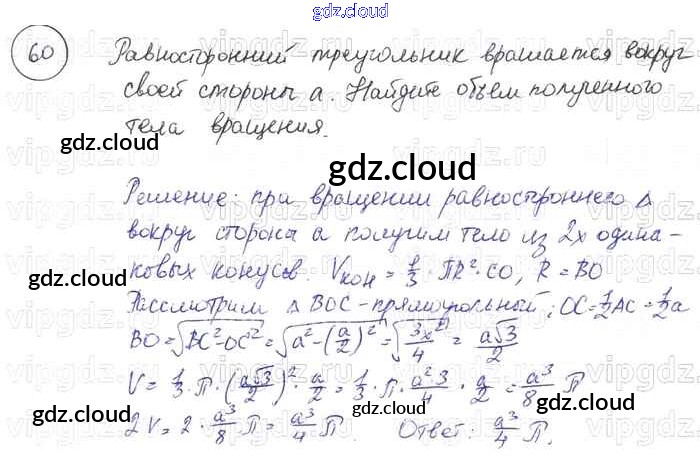 gdz.cloud
60 Равносторонний треугольник вращается вокруг
своей стороны a. Найдите объем полученного
тела вращения.
gdz.cloud
Решение: при вращении равностороннего Δ
вокруг стороны a получим тело из 2х одина-
ковых конусов. Vкон = 1/3 · ПR² · CO, R = BO
Рассмотрим Δ BOC - прямоугольный; OC = 1/2 AC = 1/2 a
BO = √(BC² - OC²) = √(a² - (a/2)²) = √(3x²/4) = a√3/2
V = 1/3 · П · (a√3/2)² · a/2 = 1/3 · П · a²·3/4 · a/2 = a³/8 П
2V = 2 · a³/8 · П = a³/4 П. Ответ: a³/4 П.
gdz.cloud
gdz.cloud
gdz.cloud
gdz.cloud
gdz.cloud
gdz.cloud